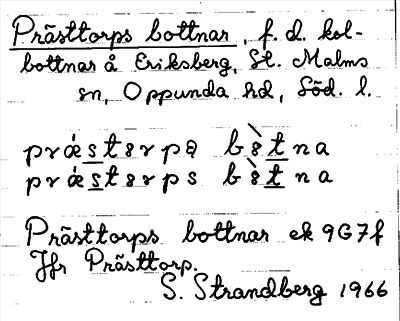 Prästtorps bottnar, f. d. kol-
bottnar å Eriksberg, St. Malms
sn, Oppunda hd, Söd. l.
præ̀stərpə bɵ̀tna
præ̀stərps bɵ̀tna
Prästtorps bottnar ek 9G7f
Jfr Prästtorp.
S. Strandberg 1966